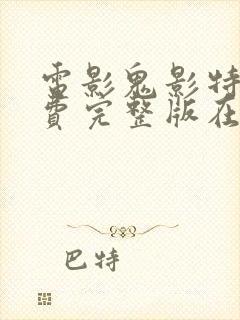 雷影鬼影特
費完整版在
巴特